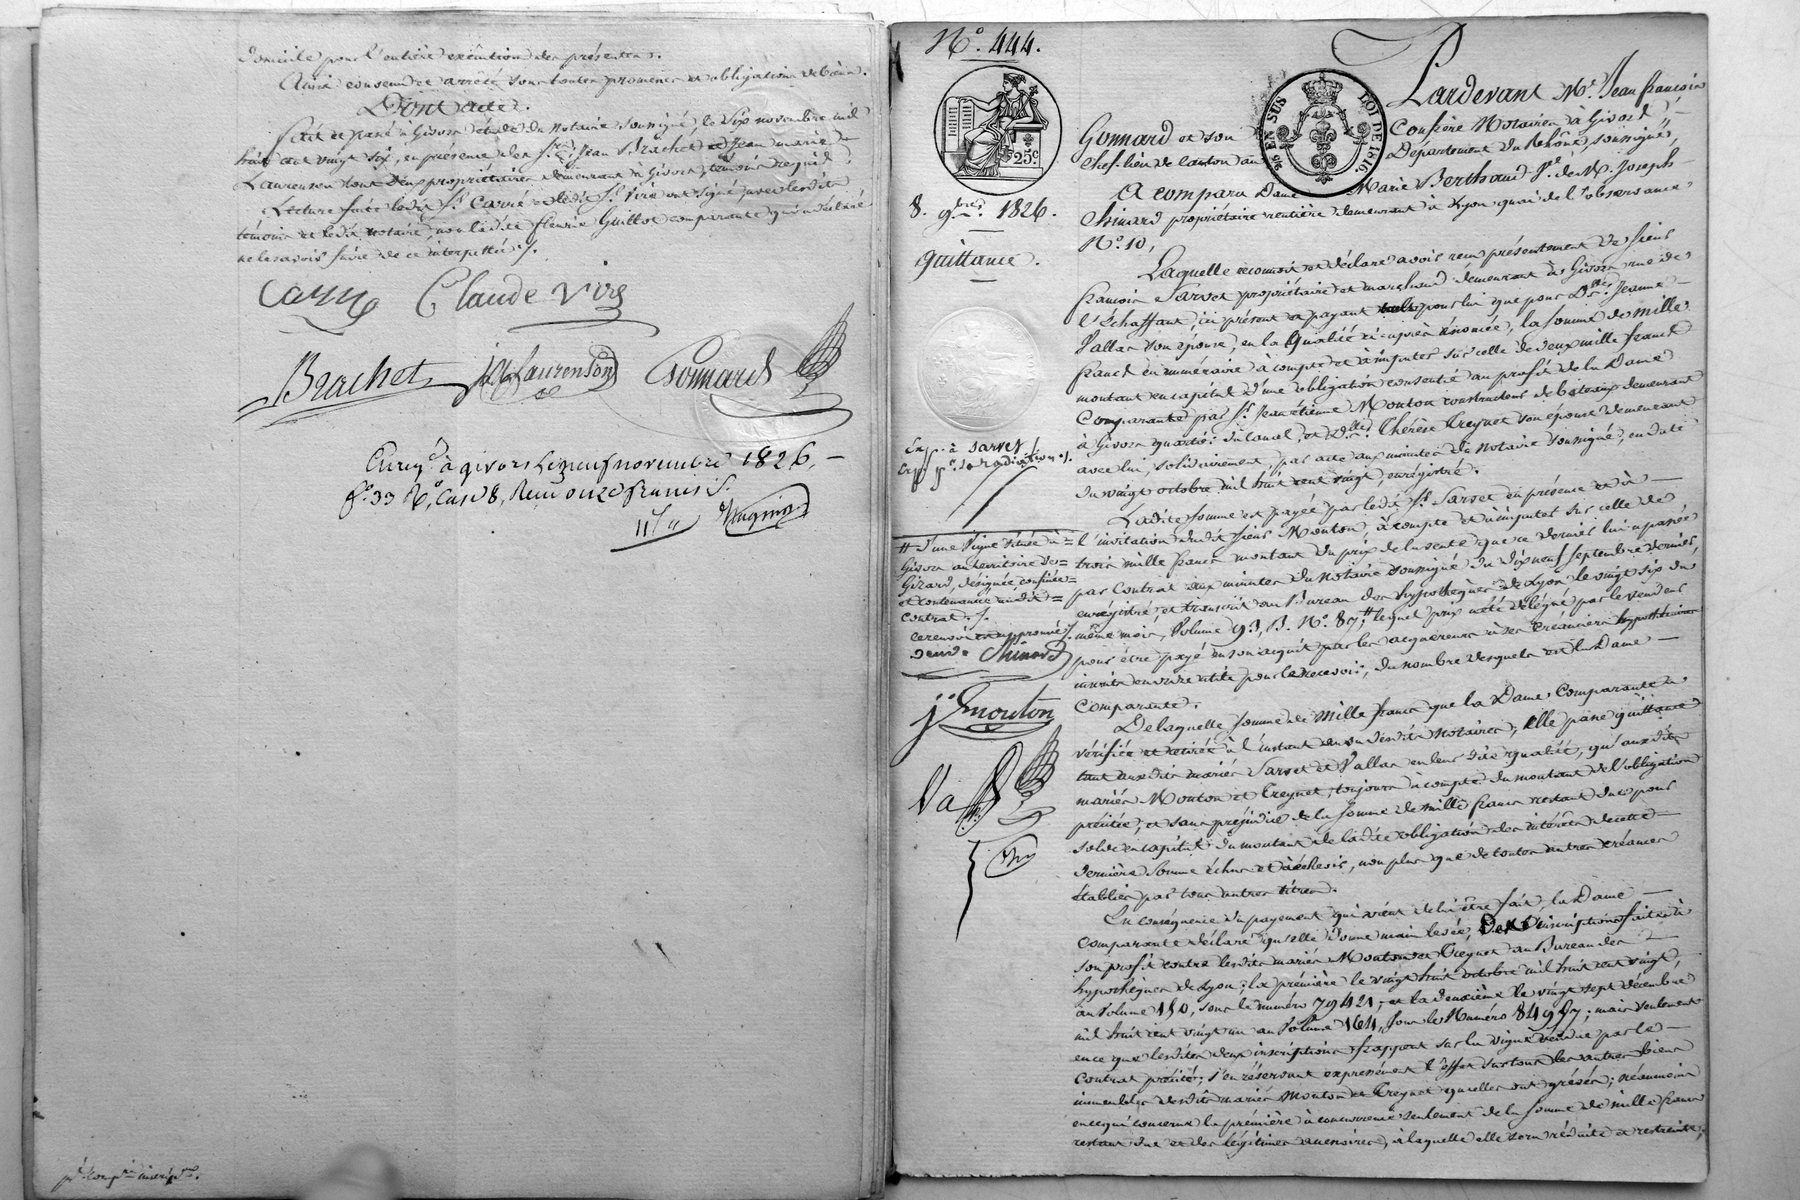 domicile pour l'entière exécution des présentes.
Ainsi convenu et arrêté sous toutes promesses et obligations de biens.
Dont acte.
Fait et passé à Givors étude du notaire soussigné, le six novembre mil
huit cent vingt six, en présence des Srs Jean Brachet et Jean marie
Laurenson tous deux propriétaires demeurant à Givors, témoins requis.
Lecture faite ledit Sr. Carré et ledit Sr. Viré ont signé avec lesdits
témoins et ledit notaire, non ladite fleurie Guillot comparante qui a déclaré
ne le savoir faire de ce interpellée ./.
Claude Viré
Brachet
Laurenson
Gonnard
Enregé. à givors le neuf novembre 1826, —
fo. 33 Ro. Case 8, Reçu onze francs
No. 444.
25c
8. 9bre. 1826.
quittance.
EN SUS
LOI DE 1816
Pardevant Me. Jean françois
Gonnard et son Confrère Notaires à Givors,
chef-lieu de canton au Département du Rhône, soussignés
A comparu Dame Marie Berthaud Ve. de M. Joseph
Chinard propriétaire rentière demeurant à Lyon quai de l'observance
No. 10,
Laquelle reconnoit et déclare avoir reçu présentement de Sieur
françois Sarset propriétaire et marchand demeurant à Givors rue de
l'échaffaut, ici présent et payant pour lui que pour De. Jeanne
Vallas son épouse, en la qualité ci-après énoncée, la somme de mille
francs en numéraire à compte et à imputer sur celle de deux mille francs
montant en capital d'une obligation consentie au profit de la Dame
Comparante par Sr. Jean étienne Mouton constructeur de bateaux demeurant
à Givors quartier du canal, et De. Thérèse Creynet son épouse demeurant
avec lui, solidairement, par acte aux minutes du Notaire soussigné, en date
du vingt octobre mil huit cent vingt, enregistré.
Ladite somme est payée par ledit Sr. Sarset en présence et à —
l'invitation dudit Sieur Mouton, à compte et à imputer sur celle de
trois mille francs montant du prix de la vente que ce dernier lui a passée
par Contrat aux minutes du Notaire soussigné du dix neuf septembre dernier,
enregistré et transcrit au Bureau des hypothèques de Lyon le vingt six du
même mois, Volume 93, B. No. 87, # lequel prix a été délégué par le vendeur
pour être payé en son acquit par les acquéreurs à ses Créanciers hypothécaires
inscrits en ordre utile pour le recevoir, du nombre desquels est la Dame —
Comparante.
De laquelle somme de mille francs que la Dame Comparante a
vérifiée et retirée à l'instant au vu desdits Notaires, Elle passe quittance
tant auxdits mariés Sarset et Vallas en leur dite qualité, qu'auxdits
mariés Mouton et Creynet, toujours à compte du montant de l'obligation
précitée, et sans préjudice de la somme de mille francs restant due pour
solde en capital du montant de ladite obligation, des intérêts de cette —
dernière somme échus et à échoir, non plus que de toutes autres créances
établies par tous autres titres.
En conséquence du payement qui vient de lui être fait, la Dame —
Comparante déclare qu'elle donne main levée, Des Deux inscriptions faites à
son profit contre lesdits mariés Mouton et Creynet au Bureau des
hypothèques de Lyon; la première le vingt huit octobre mil huit cent vingt,
au Volume 150, sous le numéro 7942; et la deuxième le vingt sept décembre
mil huit cent vingt un au Volume 164, sous le Numéro ; mais seulement
en ce que lesdites deux inscriptions frappent sur la vigne vendue par le —
Contrat précité; s'en réservant expressément l'effet sur tous les autres biens
immeubles desdits mariés Mouton et Creynet qu'elles ont grévés; néanmoins
en ce qui concerne la première à concurrence seulement de la somme de mille francs
restant due et des légitimes accessoires, à laquelle elle sera réduite et restreinte;
Exp. à Sarset
Exp. pr. la radiation ./.
# d'une Vigne située à
Givors au territoire de
Gizard, désignée, confinée
et contenancée audit
contrat ./.
ce renvoi approuvé ./.
veuve Chinard
j. E mouton